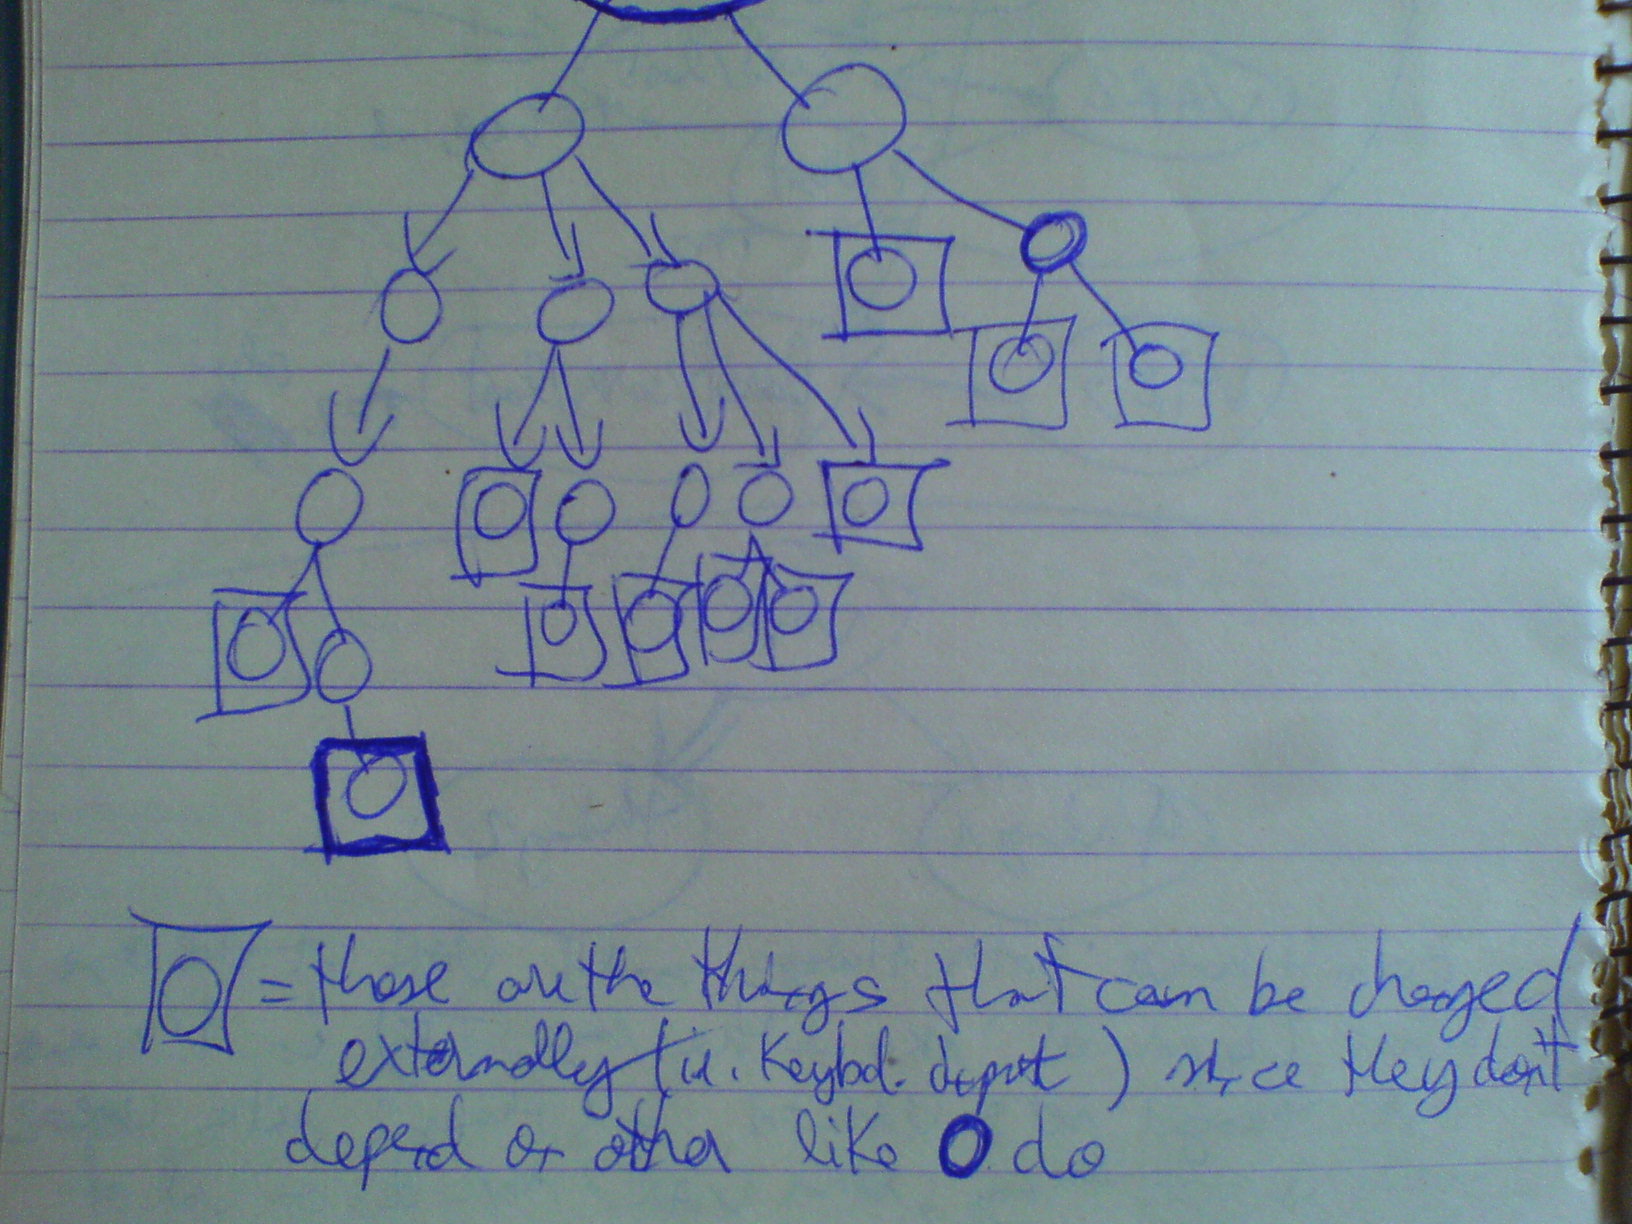 = those are the things that can be changed
externally (ie. Keybd. input) since they don't
depend on other like O do